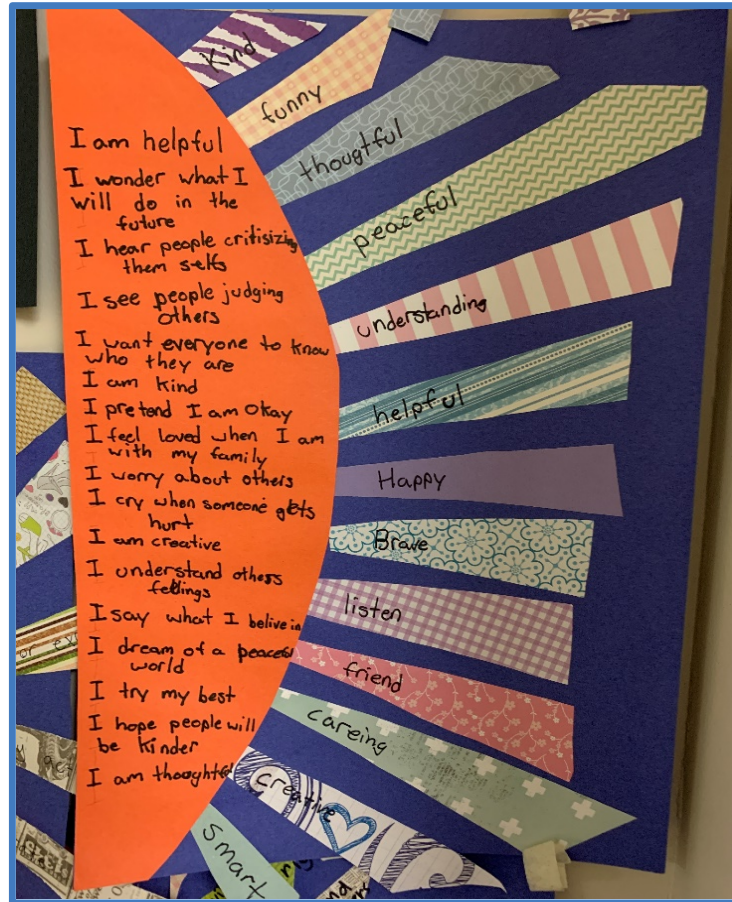 I am helpful
I wonder what I
will do in the
future
I hear people critisizing
them selfs
I see people judging
others
I want everyone to know
who they are
I am kind
I pretend I am okay
I feel loved when I am
with my family
I worry about others
I cry when someone gets
hurt
I am creative
I understand others
feelings
I say what I belive in
I dream of a peaceful
world
I try my best
I hope people will
be kinder
I am thoughtful
Kind
funny
thougtful
peaceful
understanding
helpful
Happy
Brave
listen
friend
careing
creative
smart
or